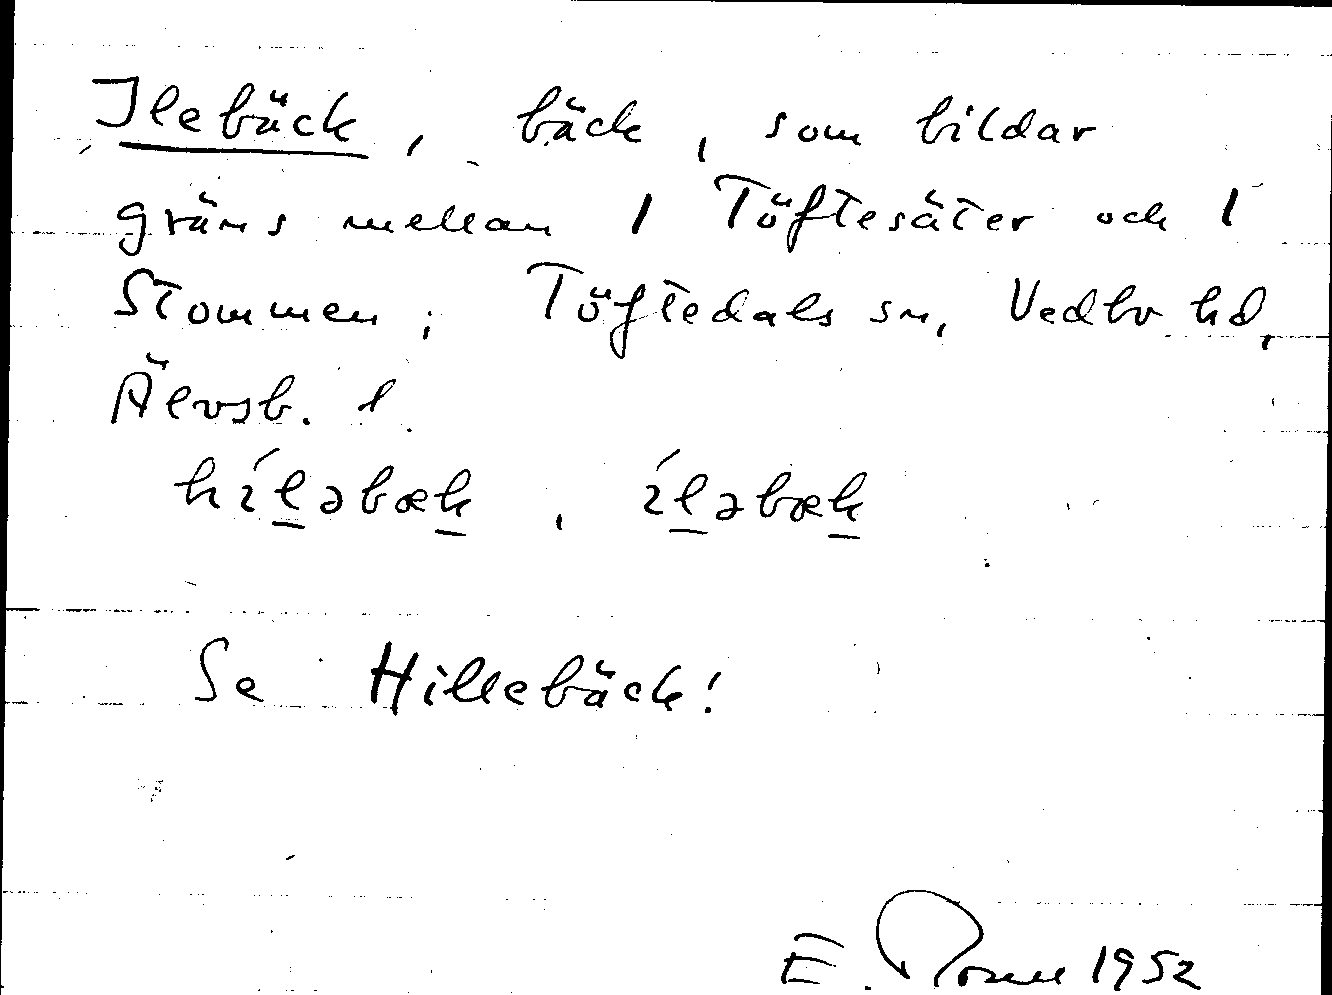 Ilebäck, bäck, som bildar
gräns mellan 1 Töftesäter och 1
Stommen; Töftedals sn, Vedbo hd,
Älvsb. l.
híl̲əbæk̲, íl̲əbæk̲
Se Hillebäck!
E. 1952